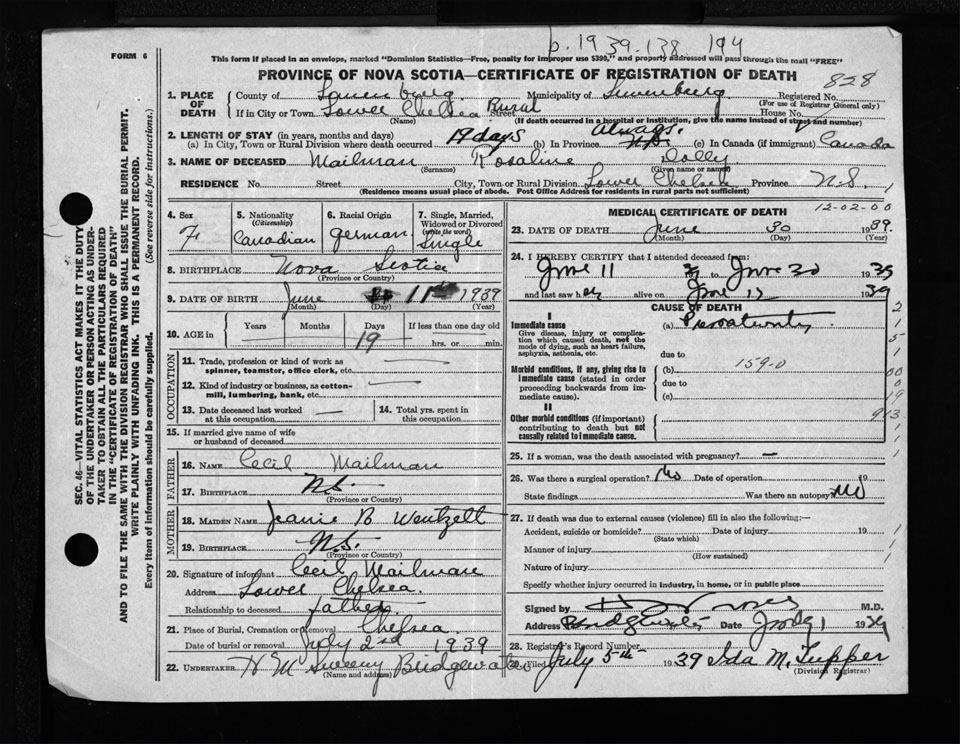 p. 1939.138 194
FORM 6
This form if placed in an envelope, marked "Dominion Statistics—Free, penalty for improper use $300," and properly addressed will pass through the mail "FREE"
PROVINCE OF NOVA SCOTIA—CERTIFICATE OF REGISTRATION OF DEATH
828
1. PLACE OF DEATH
County of Lunenburg Municipality of Lunenburg Registered No.
(For use of Registrar General only)
If in City or Town Lower Chelsea Rural Street House No.
(Name) (If death occurred in a hospital or institution, give the name instead of street and number)
2. LENGTH OF STAY (in years, months and days)
(a) In City, Town or Rural Division where death occurred 19 days (b) In Province Always. N.S. (c) In Canada (if immigrant) Canada
3. NAME OF DECEASED Mailman Rosaline Dolly
(Surname) (Given name or names)
RESIDENCE No. Street City, Town or Rural Division Lower Chelsea Province N.S.
(Residence means usual place of abode. Post Office Address for residents in rural parts not sufficient)
4. Sex
F
5. Nationality (Citizenship)
Canadian
6. Racial Origin
German
7. Single, Married, Widowed or Divorced (write the word)
Single
8. BIRTHPLACE Nova Scotia
(Province or Country)
9. DATE OF BIRTH June 11th 1939
(Month) (Day) (Year)
10. AGE in Years Months Days If less than one day old
19 hrs. or min.
OCCUPATION
11. Trade, profession or kind of work as spinner, teamster, office clerk, etc. —
12. Kind of industry or business, as cotton-mill, lumbering, bank, etc. —
13. Date deceased last worked at this occupation —
14. Total yrs. spent in this occupation
15. If married give name of wife or husband of deceased
FATHER
16. NAME Cecil Mailman
17. BIRTHPLACE N.S.
(Province or Country)
MOTHER
18. MAIDEN NAME Jeanie B Wentzell
19. BIRTHPLACE N.S.
(Province or Country)
20. Signature of informant Cecil Mailman
Address Lower Chelsea.
Relationship to deceased father.
21. Place of Burial, Cremation or Removal Chelsea.
Date of burial or removal July 2nd 1939
22. UNDERTAKER H M Sweeny Bridgewater
(Name and address)
MEDICAL CERTIFICATE OF DEATH
12-02-00
23. DATE OF DEATH June 30 1939.
(Month) (Day) (Year)
24. I HEREBY CERTIFY that I attended deceased from:
June 11 39 to June 30 1939
and last saw her alive on June 1939
CAUSE OF DEATH
I
Immediate cause
Give disease, injury or complication which caused death, not the mode of dying, such as heart failure, asphyxia, asthenia, etc.
(a) Prematurity
due to
Morbid conditions, if any, giving rise to immediate cause (stated in order proceeding backwards from immediate cause).
(b) 159-0
due to
(c)
II
Other morbid conditions (if important) contributing to death but not causally related to immediate cause.
25. If a woman, was the death associated with pregnancy? —
26. Was there a surgical operation? No Date of operation 19
State findings Was there an autopsy? No
27. If death was due to external causes (violence) fill in also the following:—
Accident, suicide or homicide? Date of injury 19
(State which)
Manner of injury
(How sustained)
Nature of injury
Specify whether injury occurred in industry, in home, or in public place
Signed by M.D.
Address Bridgewater Date July 1 1939
28. Registrar's Record Number
29. Filed July 5th 1939 Ida M. Tupper
(Division Registrar)
SEC. 46—VITAL STATISTICS ACT MAKES IT THE DUTY
OF THE UNDERTAKER OR PERSON ACTING AS UNDER-
TAKER TO OBTAIN ALL THE PARTICULARS REQUIRED
IN THE "CERTIFICATE OF REGISTRATION OF DEATH"
AND TO FILE THE SAME WITH THE DIVISION REGISTRAR WHO SHALL ISSUE THE BURIAL PERMIT.
WRITE PLAINLY WITH UNFADING INK. THIS IS A PERMANENT RECORD.
Every item of information should be carefully supplied. (See reverse side for instructions.)